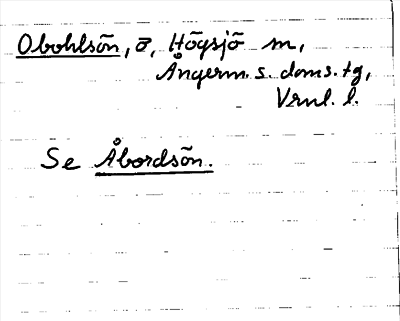 Obohlsön, ö, Högsjö sn,
Ångerm. s. doms. tg,
Vrnl. l.
Se Åbordsön.